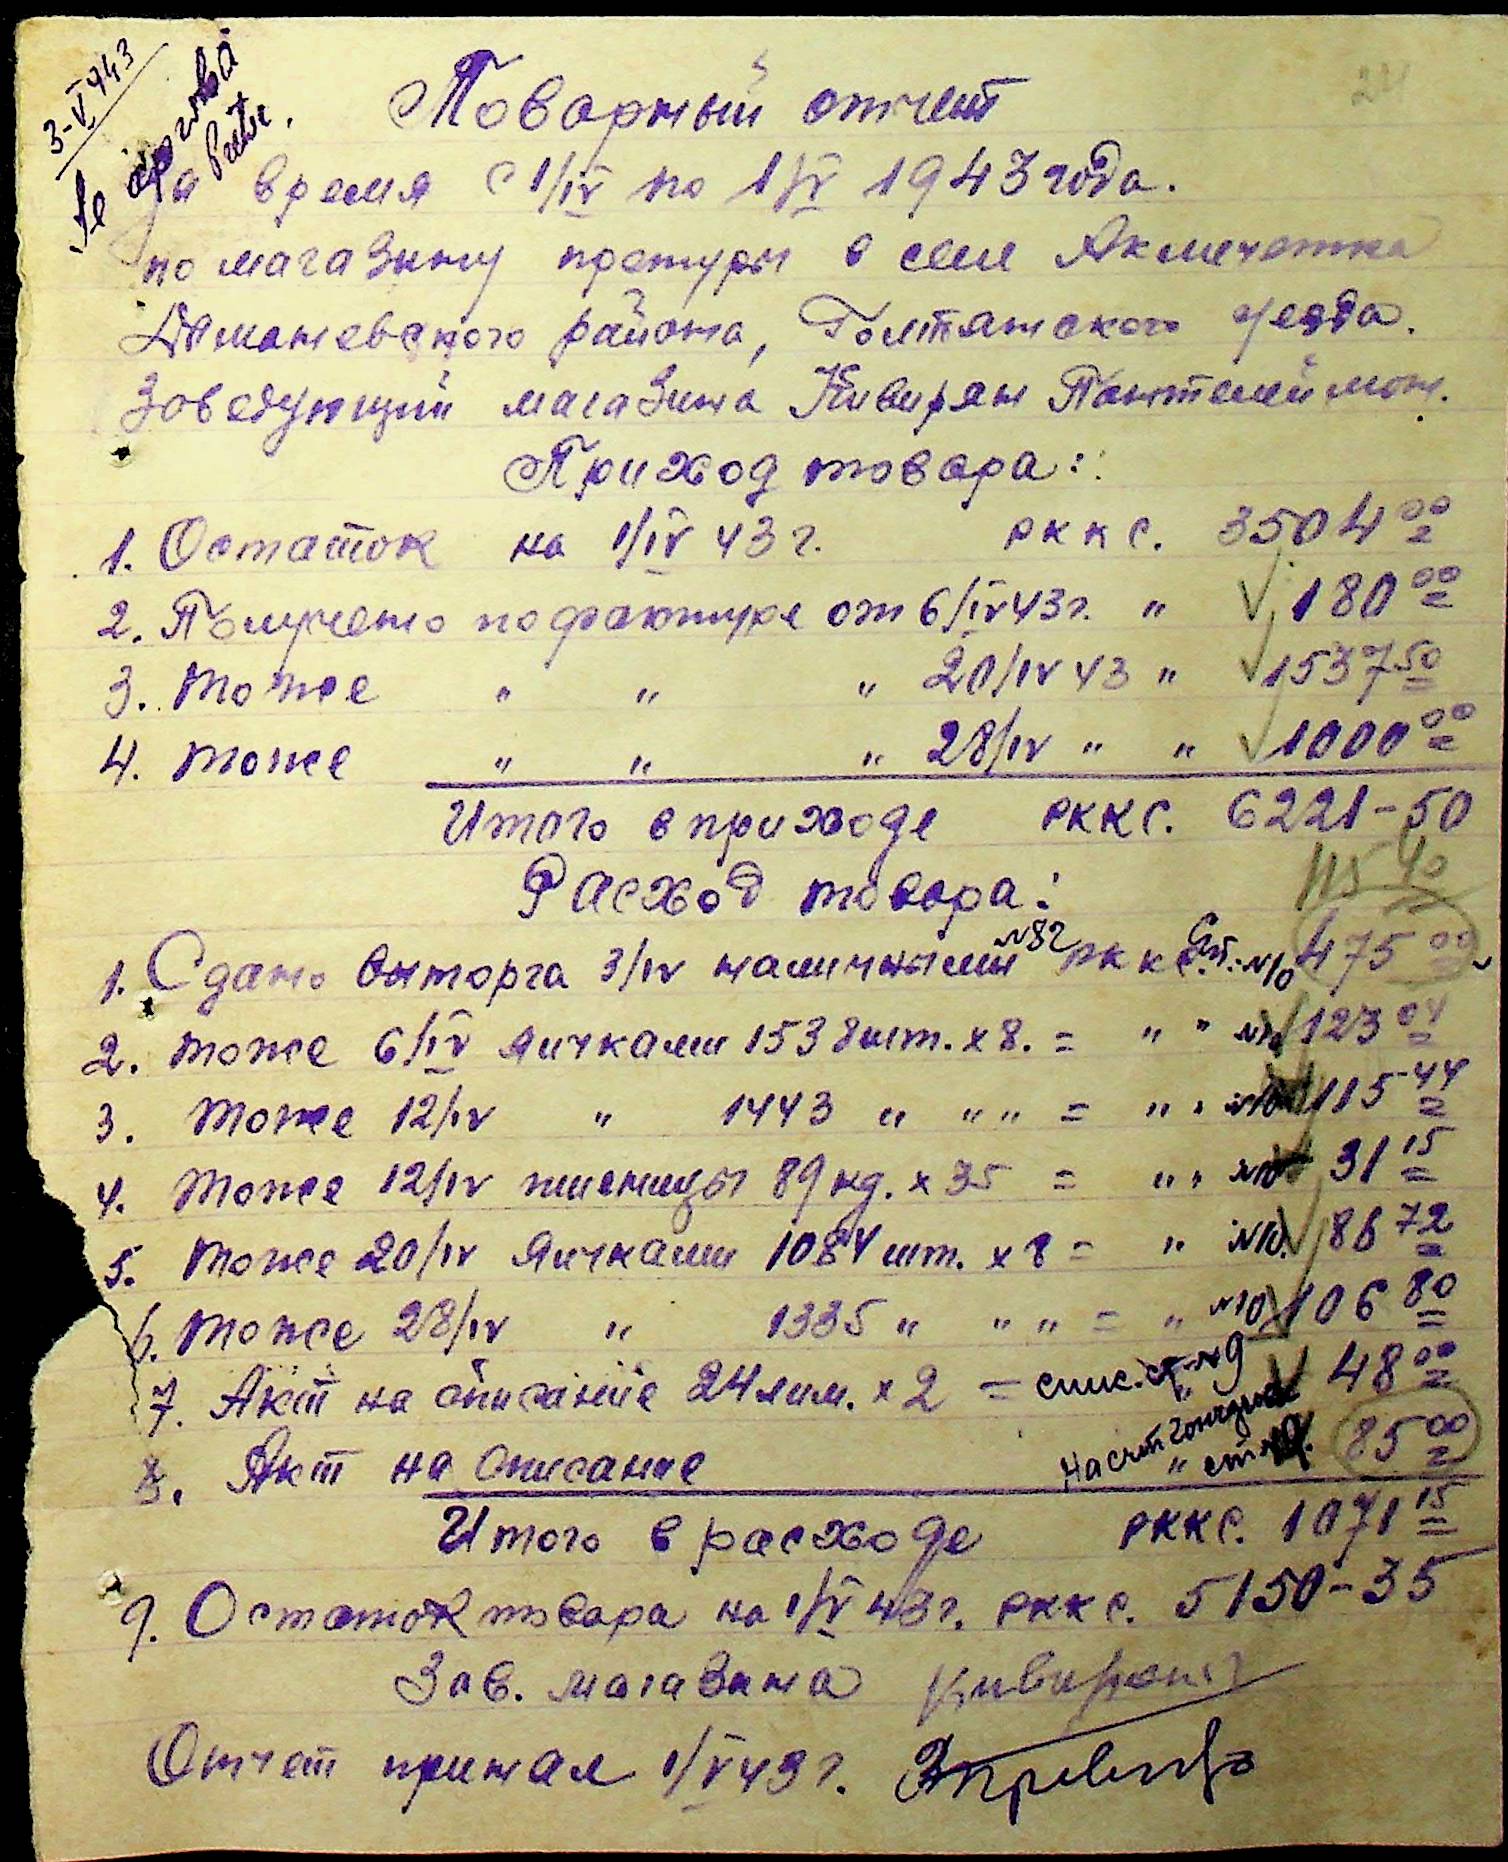 3-V 943
24
Товарный отчет
за время с 1/IV по 1/V 1943 года.
по магазину претуры в селе Акмечетка
Доманевского района, Голтянского уезда.
Заведующий магазина Кивирян Пантелеймон.
Приход товара:
1. Остаток на 1/IV 43 г. РККС. 3504 00
2. Получено по фактуре от 6/IV 43 г. " 180 00
3. тоже " " " 20/IV 43 " 1537 50
4. тоже " " " 28/IV " " 1000 00
Итого в приходе РККС. 6221-50
115 40
Расход товара:
1. Сдано Онторга 3/IV наличными №82 РККС. Ст. №10 475 00
2. тоже 6/IV яичками 1538 шт. х 8. = " " 123 04
3. тоже 12/IV " 1443 " " " = " " №10 115-44
4. тоже 12/IV пшеницы 89 кг. х 35 = " " №10 31 15
5. тоже 20/IV яичками 1084 шт. х 8 = " №10. 86 72
6. тоже 28/IV " 1335 " " " = " №10 106 80
7. Акт на списание 24 лим. х 2 = спис. ст. №9 48 00
8. Акт на списание на счет " ст. 85 00
Итого в расходе РККС. 1071 15
9. Остаток товара на 1/V 43 г. РККС. 5150-35
Зав. магазина Кивирян
Отчет принял 1/V 43 г.